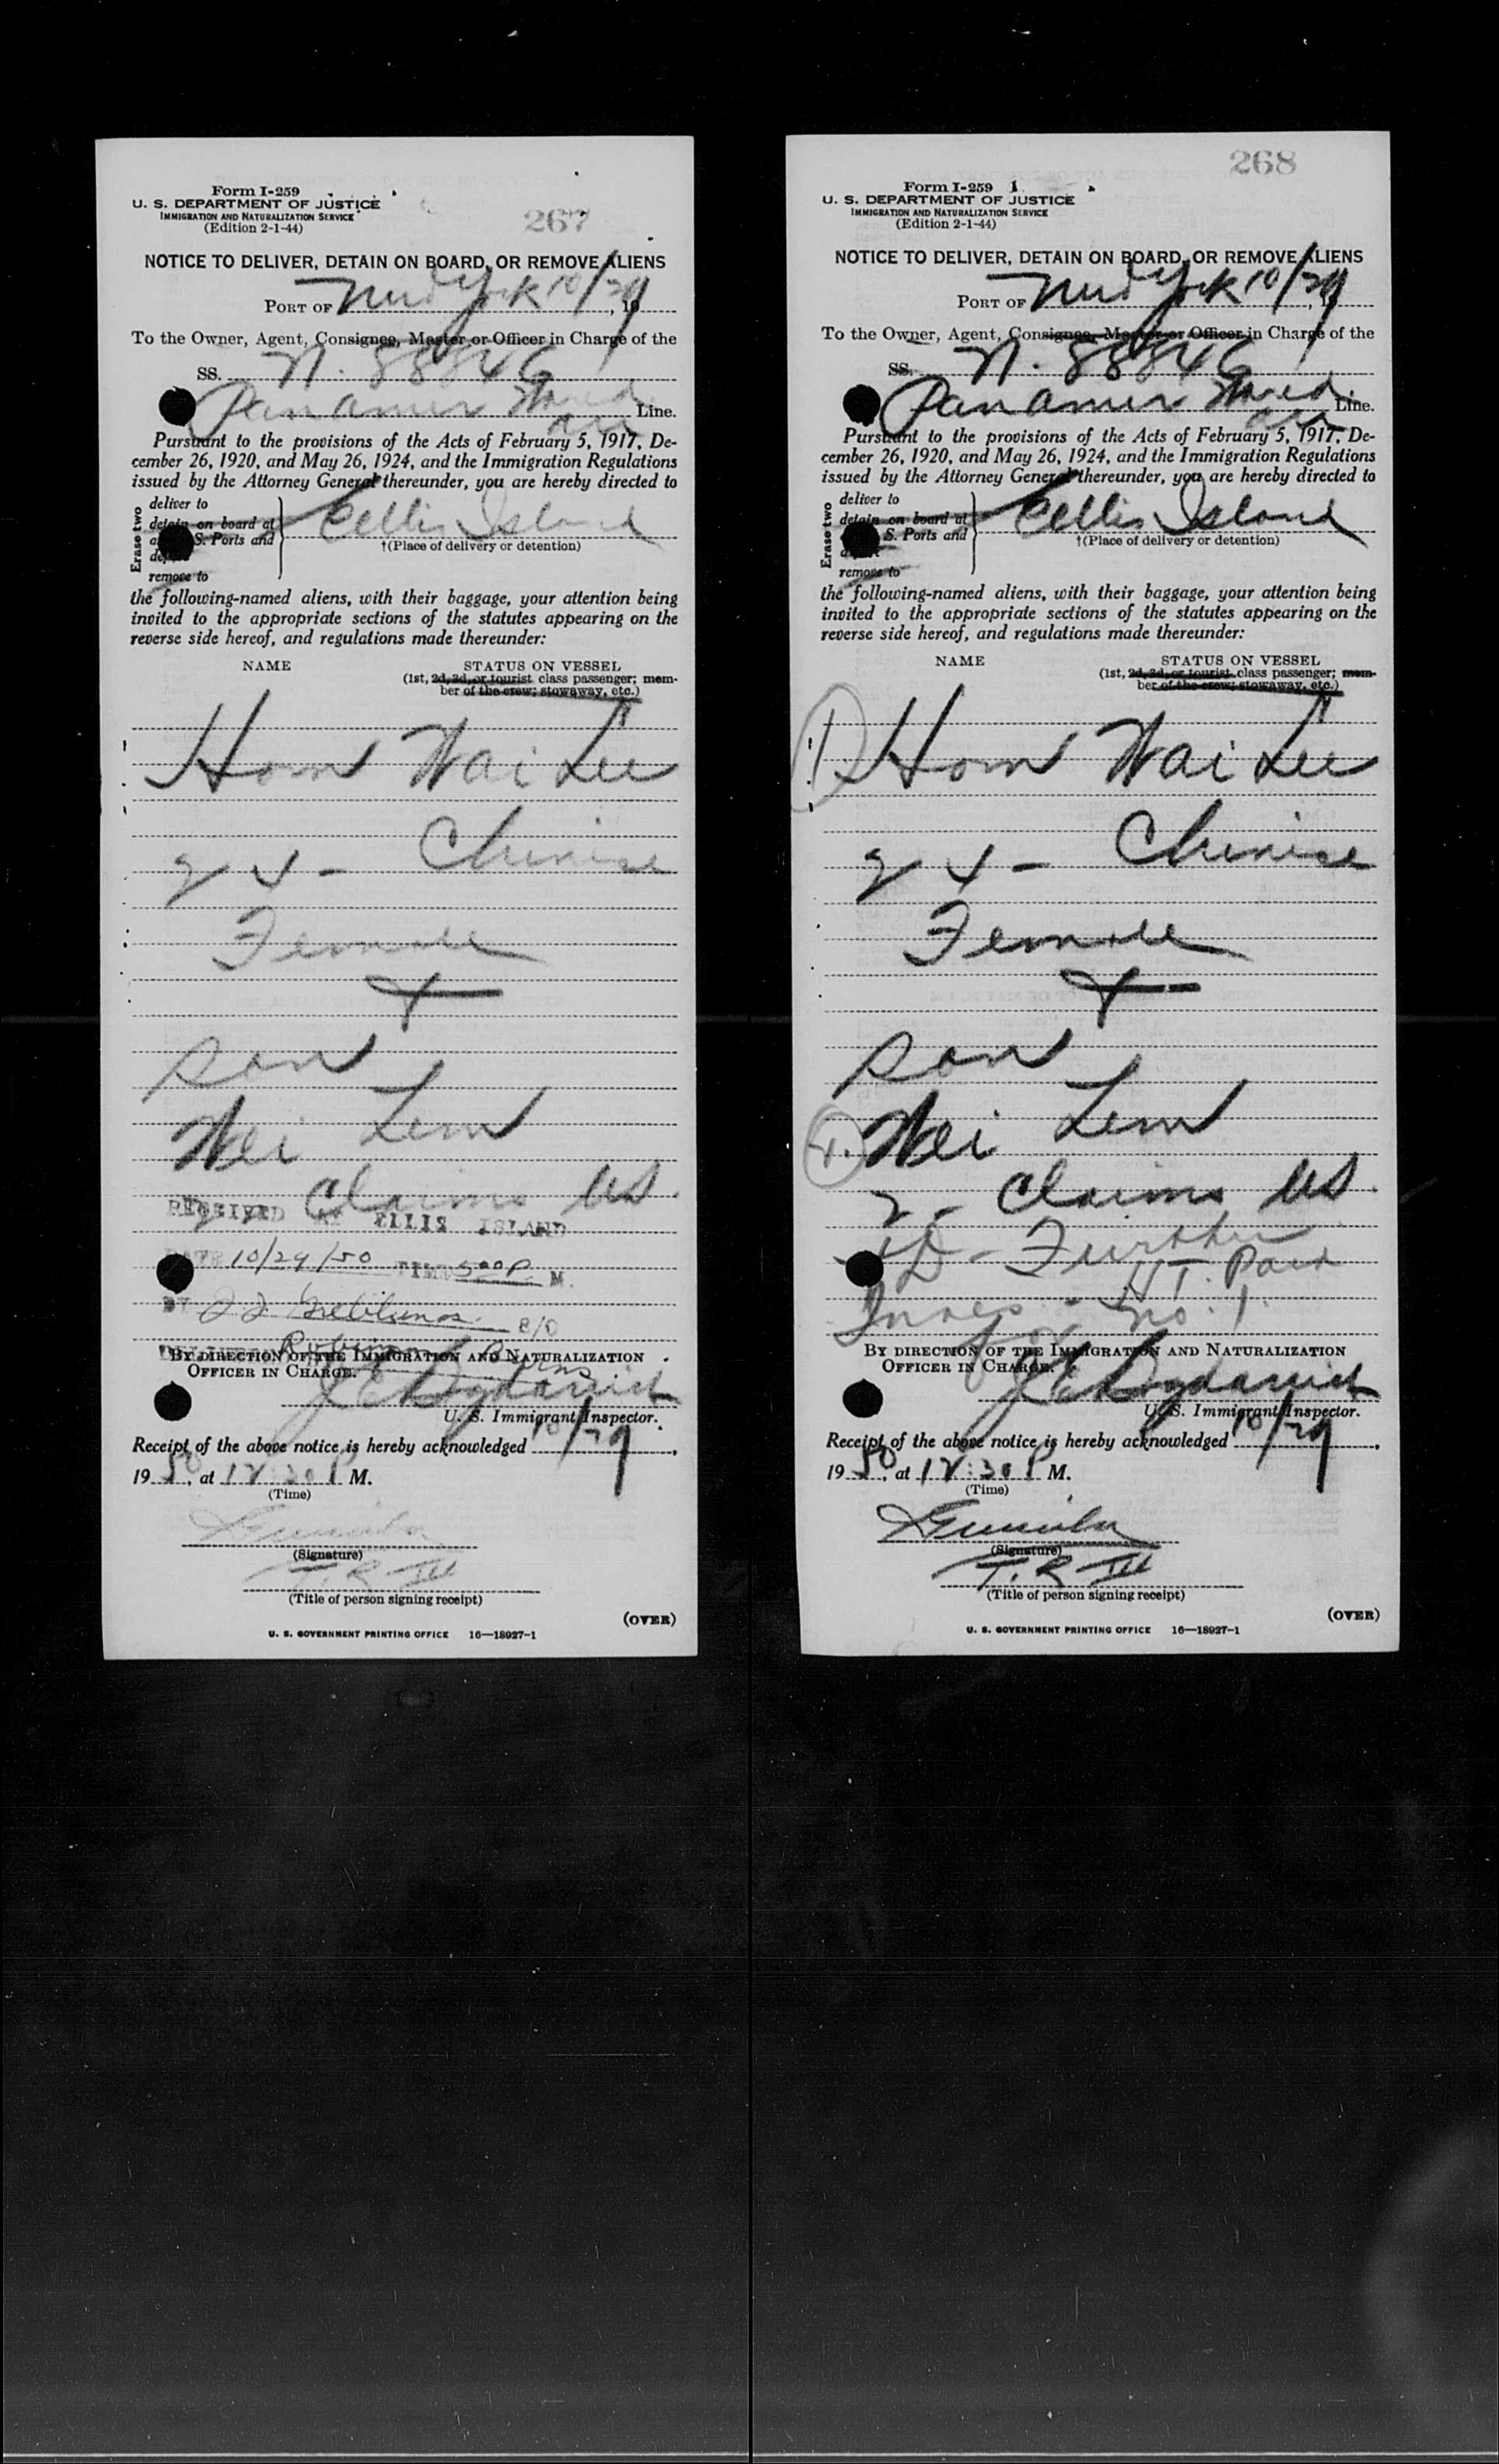 Form I-259
U. S. DEPARTMENT OF JUSTICE
IMMIGRATION AND NATURALIZATION SERVICE
(Edition 2-1-44)
267
NOTICE TO DELIVER, DETAIN ON BOARD, OR REMOVE ALIENS
PORT OF New York 10/29, 19
To the Owner, Agent, Consignee, Master or Officer in Charge of the
SS. N. 88846
Pan Amer World
Air Line.
Pursuant to the provisions of the Acts of February 5, 1917, De-
cember 26, 1920, and May 26, 1924, and the Immigration Regulations
issued by the Attorney General thereunder, you are hereby directed to
Erase two
deliver to
detain on board at
S. Ports and
remove to
Ellis Island
†(Place of delivery or detention)
the following-named aliens, with their baggage, your attention being
invited to the appropriate sections of the statutes appearing on the
reverse side hereof, and regulations made thereunder:
NAME STATUS ON VESSEL
(1st, 2d, 3d, or tourist class passenger; mem-
ber of the crew; stowaway, etc.)
Hom Wai Lee
24 - Chinese
Female
+
son
Wei Lem
2 - Claims US
RECEIVED AT ELLIS ISLAND
DATE 10/29/50 TIME 500 P. M.
BY
BY DIRECTION OF THE IMMIGRATION AND NATURALIZATION
OFFICER IN CHARGE.
U. S. Immigrant Inspector.
Receipt of the above notice is hereby acknowledged 10/29,
1950, at 12:30 P M.
(Time)
(Signature)
(Title of person signing receipt)
(OVER)
U. S. GOVERNMENT PRINTING OFFICE 16—18927-1
268
Form I-259
U. S. DEPARTMENT OF JUSTICE
IMMIGRATION AND NATURALIZATION SERVICE
(Edition 2-1-44)
NOTICE TO DELIVER, DETAIN ON BOARD, OR REMOVE ALIENS
PORT OF New York 10/29, 19
To the Owner, Agent, Consignee, Master or Officer in Charge of the
SS. N. 88846
Pan Amer World
Air Line.
Pursuant to the provisions of the Acts of February 5, 1917, De-
cember 26, 1920, and May 26, 1924, and the Immigration Regulations
issued by the Attorney General thereunder, you are hereby directed to
Erase two
deliver to
detain on board at
S. Ports and
remove to
Ellis Island
†(Place of delivery or detention)
the following-named aliens, with their baggage, your attention being
invited to the appropriate sections of the statutes appearing on the
reverse side hereof, and regulations made thereunder:
NAME STATUS ON VESSEL
(1st, 2d, 3d, or tourist class passenger; mem-
ber of the crew; stowaway, etc.)
1) Hom Wai Lee
24 - Chinese
Female
+
son
Wei Lem
2 - Claims US
Further
H.T. Paid
no. 1.
BY DIRECTION OF THE IMMIGRATION AND NATURALIZATION
OFFICER IN CHARGE.
U. S. Immigrant Inspector.
Receipt of the above notice is hereby acknowledged 10/29,
1950, at 12:30 P M.
(Time)
(Signature)
(Title of person signing receipt)
(OVER)
U. S. GOVERNMENT PRINTING OFFICE 16—18927-1